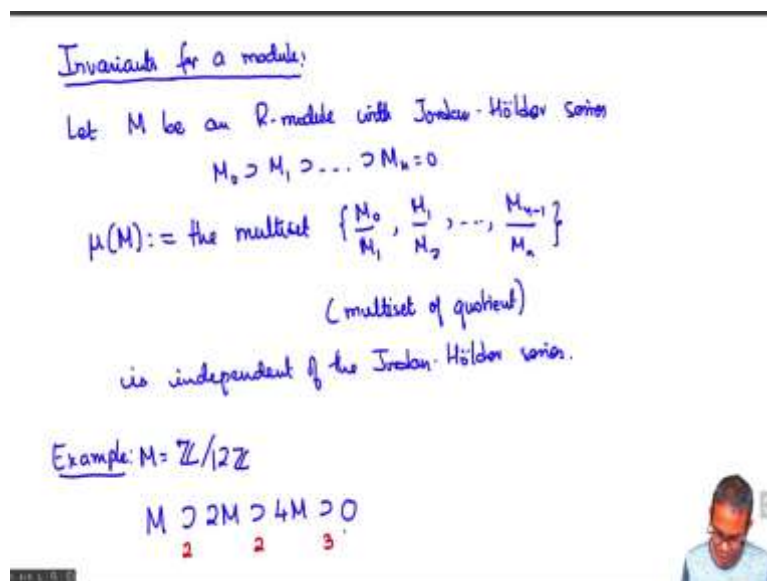 Invariants for a module:
Let M be an R-module with Jordan-Hölder series
M₀ ⊃ M₁ ⊃ ... ⊃ Mₙ = 0
μ(M) := the multiset {M₀/M₁, M₁/M₂, ..., Mₙ₋₁/Mₙ}
(multiset of quotient)
is independent of the Jordan-Hölder series.
Example: M = ℤ/12ℤ
M ⊃ 2M ⊃ 4M ⊃ 0
2 2 3